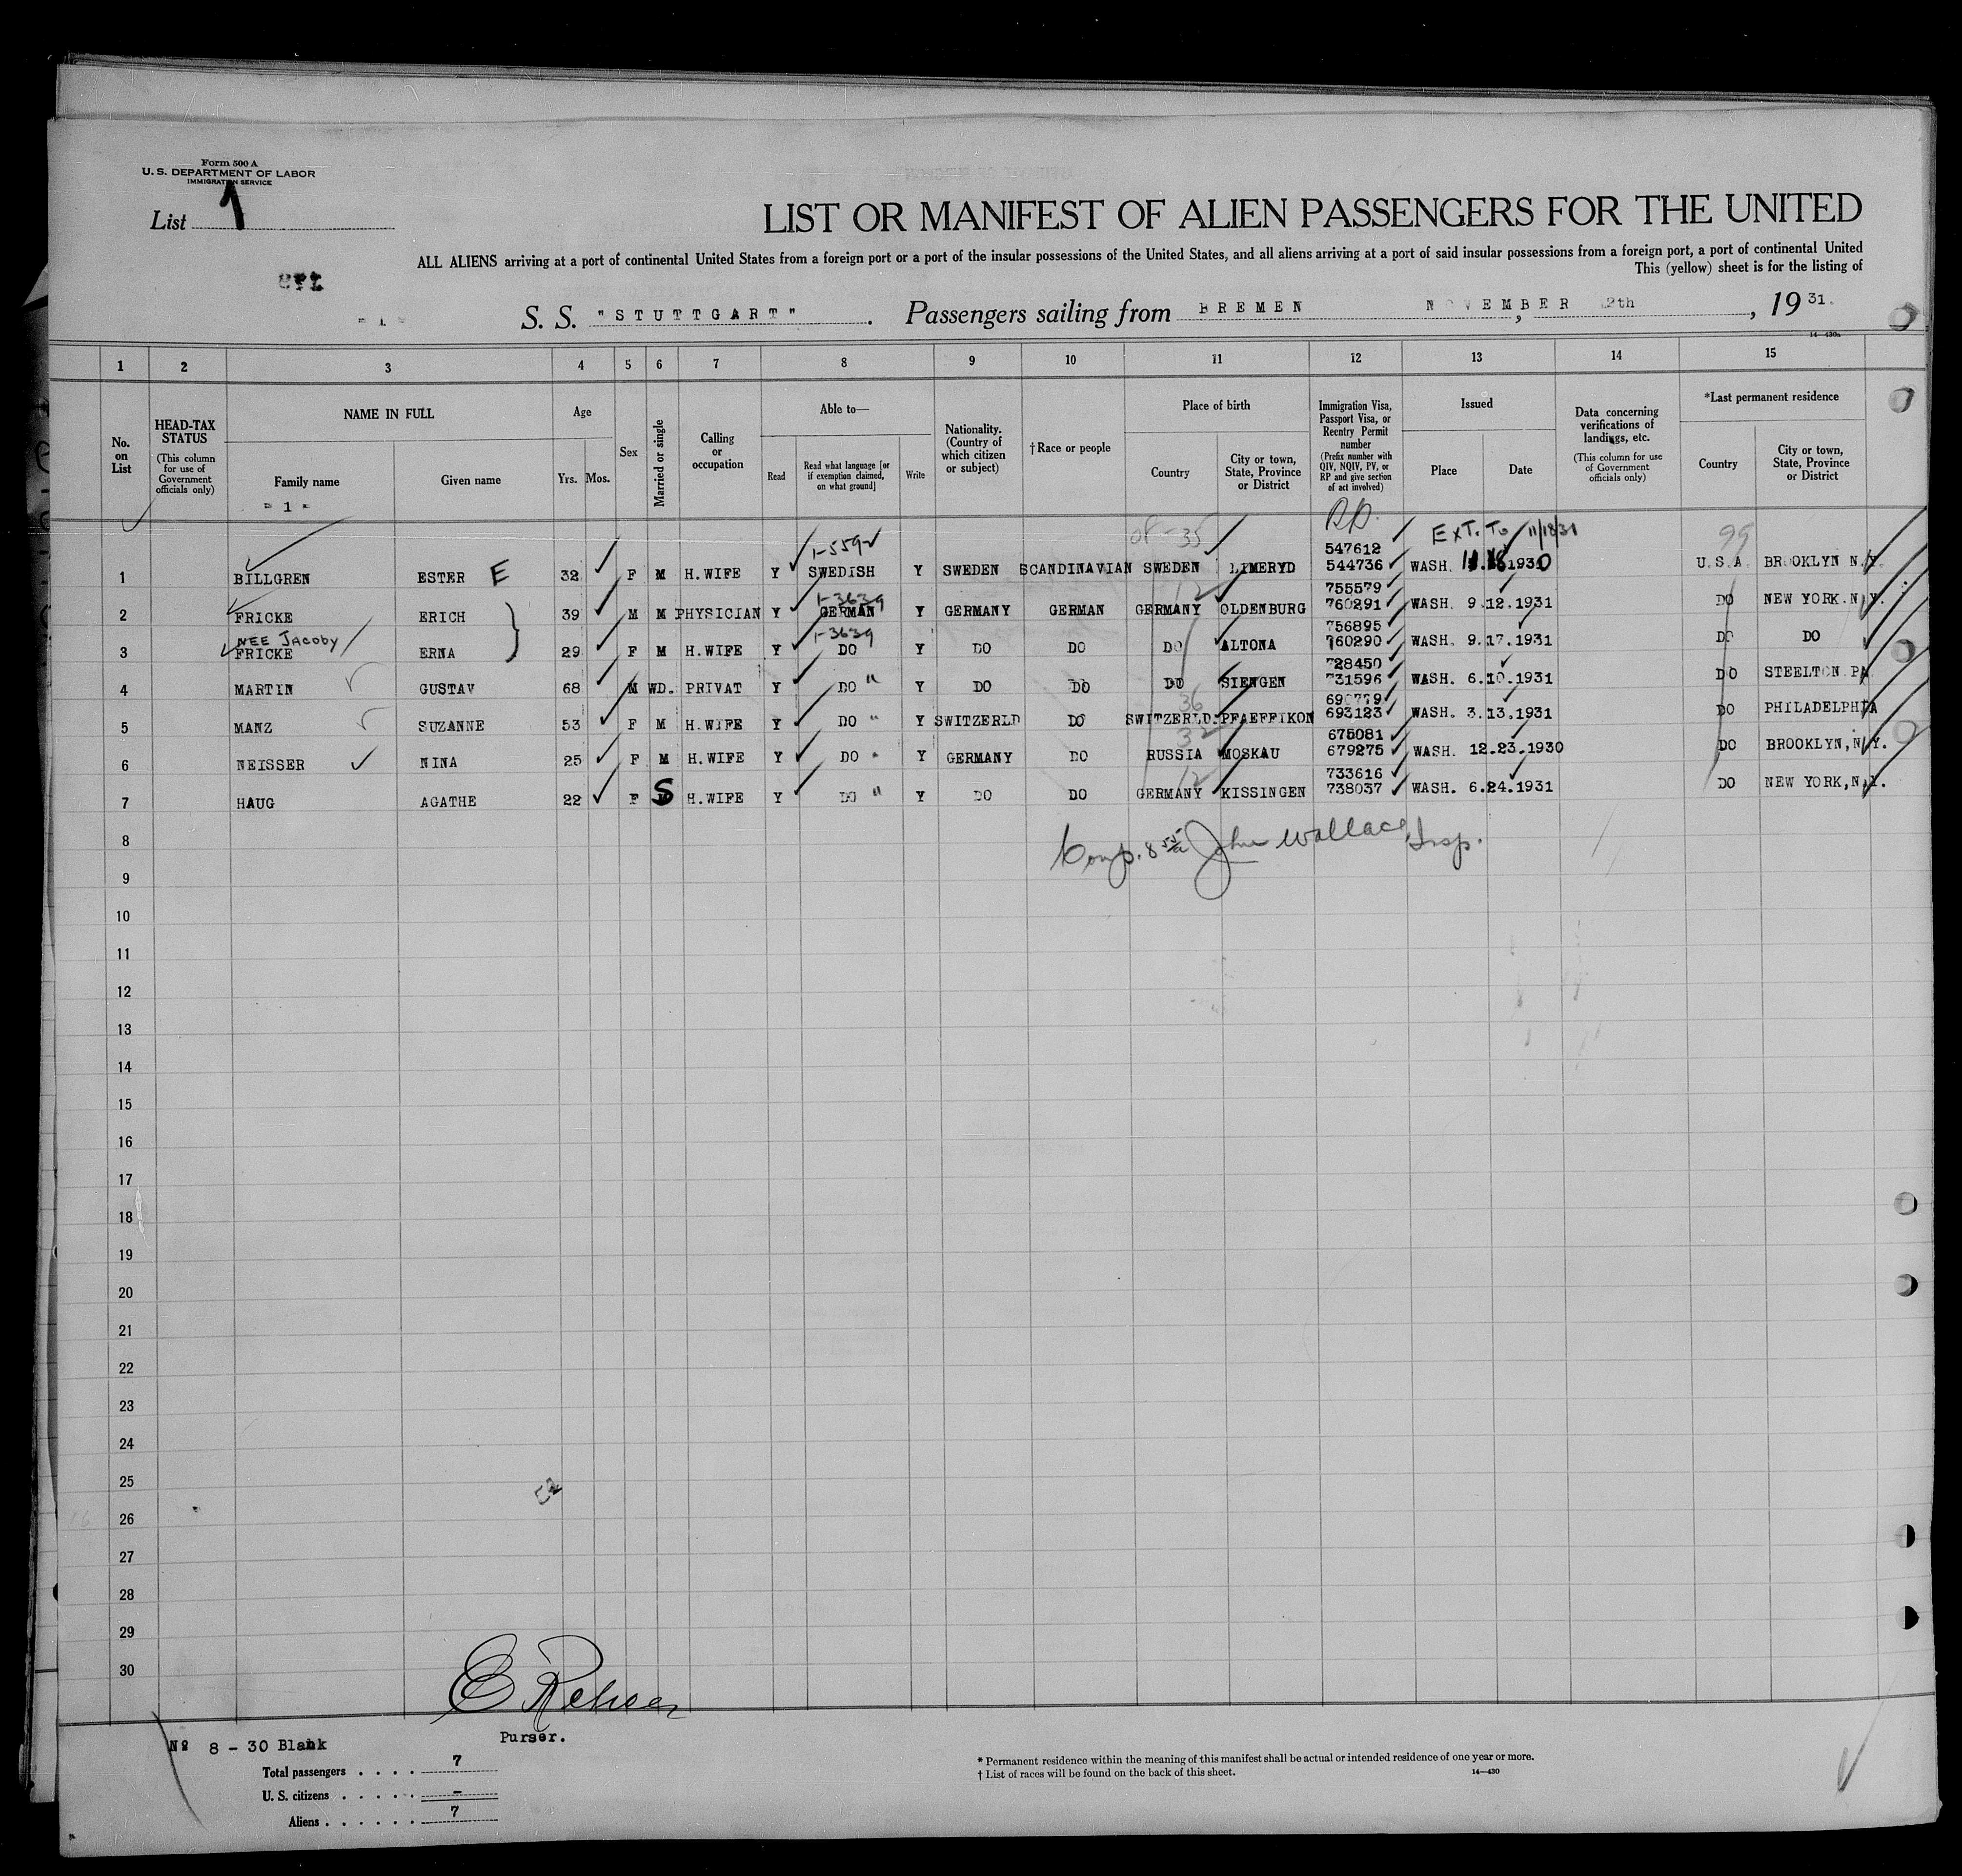 Form 500 A
U. S. DEPARTMENT OF LABOR
IMMIGRATION SERVICE
List 1
LIST OR MANIFEST OF ALIEN PASSENGERS FOR THE UNITED
ALL ALIENS arriving at a port of continental United States from a foreign port or a port of the insular possessions of the United States, and all aliens arriving at a port of said insular possessions from a foreign port, a port of continental United
This (yellow) sheet is for the listing of
- 1 -
S. S. "STUTTGART". Passengers sailing from BREMEN, NOVEMBER 12th, 19 31.
14—430a
1 2 3 4 5 6 7 8 9 10 11 12 13 14 15
No. on List
HEAD-TAX STATUS
(This column for use of Government officials only)
NAME IN FULL
Family name
- 1 -
Given name
Age
Yrs. Mos.
Sex
Married or single
Calling or occupation
Able to—
Read
Read what language [or if exemption claimed, on what ground]
Write
Nationality. (Country of which citizen or subject)
† Race or people
Place of birth
Country
City or town, State, Province or District
Immigration Visa, Passport Visa, or Reentry Permit number
(Prefix number with QIV, NQIV, PV, or RP and give section of act involved)
Issued
Place
Date
Data concerning verifications of landings, etc.
(This column for use of Government officials only)
*Last permanent residence
Country
City or town, State, Province or District
R.P.
1-559 35 547612 EXT. To 11/18/31 99
1 BILLGREN ESTER E 32 F M H.WIFE Y SWEDISH Y SWEDEN SCANDINAVIAN SWEDEN LIMERYD 544736 WASH. 11.18.1930 U.S.A. BROOKLYN N.Y.
1-3639 12 755579
2 FRICKE ERICH 39 M M PHYSICIAN Y GERMAN Y GERMANY GERMAN GERMANY OLDENBURG 760291 WASH. 9.12.1931 DO NEW YORK.N.Y.
NEE Jacoby 1-3639 756895
3 FRICKE ERNA 29 F M H.WIFE Y DO Y DO DO DO ALTONA 760290 WASH. 9.17.1931 DO DO
728450
4 MARTIN GUSTAV 68 M WD. PRIVAT Y DO " Y DO DO DO SIENGEN 731596 WASH. 6.10.1931 DO STEELTON PA
36 690779
5 MANZ SUZANNE 53 F M H.WIFE Y DO " Y SWITZERLD DO SWITZERLD. PFAEFFIKON 693123 WASH. 3.13.1931 DO PHILADELPHIA
32 675081
6 NEISSER NINA 25 F M H.WIFE Y DO " Y GERMANY DO RUSSIA MOSKAU 679275 WASH. 12.23.1930 DO BROOKLYN, N.Y.
12 733616
7 HAUG AGATHE 22 F S H.WIFE Y DO " Y DO DO GERMANY KISSINGEN 738037 WASH. 6.24.1931 DO NEW YORK, N.Y.
8
Comp. 8 55 a John Wallace, Insp.
9
10
11
12
13
14
15
16
17
18
19
20
21
22
23
24
25
26
27
28
29
30
Purser.
No 8 - 30 Blank
Total passengers . . . . 7
U. S. citizens . . . . . -
Aliens . . . . . . 7
* Permanent residence within the meaning of this manifest shall be actual or intended residence of one year or more.
† List of races will be found on the back of this sheet.
14—430